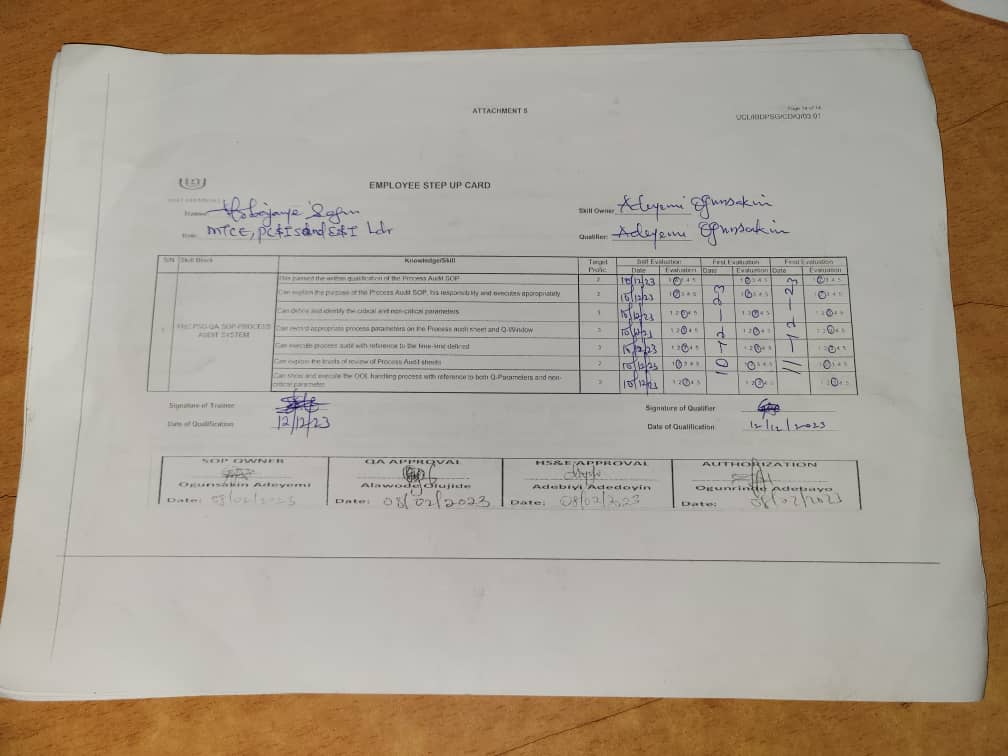 ATTACHMENT 5
Page 14 of 14
UCL/IBDPSG/CD/Q/03.01
EMPLOYEE STEP UP CARD
Trainee
Skill Owner Adeyemi Ogunsakin
Role: MTCE, PC&IS and E&I Ldr
Qualifier: Adeyemi Ogunsakin
S/N Skill Block Knowledge/Skill Target Profic. Self Evaluation First Evaluation Final Evaluation
Date Evaluation Date Evaluation Date Evaluation
Has passed the written qualification of the Process Audit SOP 2 10/12/23 1 2 3 4 5 1 2 3 4 5 1 2 3 4 5
Can explain the purpose of the Process Audit SOP, his responsibility and executes appropriately 2 10/12/23 1 2 3 4 5 1 2 3 4 5 1 2 3 4 5
Can define and identify the critical and non-critical parameters 3 10/12/23 1 2 3 4 5 1 2 3 4 5 1 2 3 4 5
1 PSG-QA SOP-PROCESS AUDIT SYSTEM Can record appropriate process parameters on the Process audit sheet and Q-Window 3 10/12/23 1 2 3 4 5 1 2 3 4 5 1 2 3 4 5
Can execute process audit with reference to the time-line defined 3 10/12/23 1 2 3 4 5 1 2 3 4 5 1 2 3 4 5
Can explain the levels of review of Process Audit sheets 2 10/12/23 1 2 3 4 5 1 2 3 4 5 1 2 3 4 5
Can show and execute the OOL handling process with reference to both Q-Parameters and non-critical parameter 3 10/12/23 1 2 3 4 5 1 2 3 4 5 1 2 3 4 5
10-12-23
11-12-23
Signature of Trainee
Signature of Qualifier
Date of Qualification 12/12/23
Date of Qualification 12/12/2023
SOP OWNER QA APPROVAL HS&E APPROVAL AUTHORIZATION
Ogunsakin Adeyemi Alawode Olujide Adebiyi Adedoyin Ogunrinde Adebayo
Date: 08/02/2023 Date: 08/02/2023 Date: 08/02/2023 Date: 08/02/2023